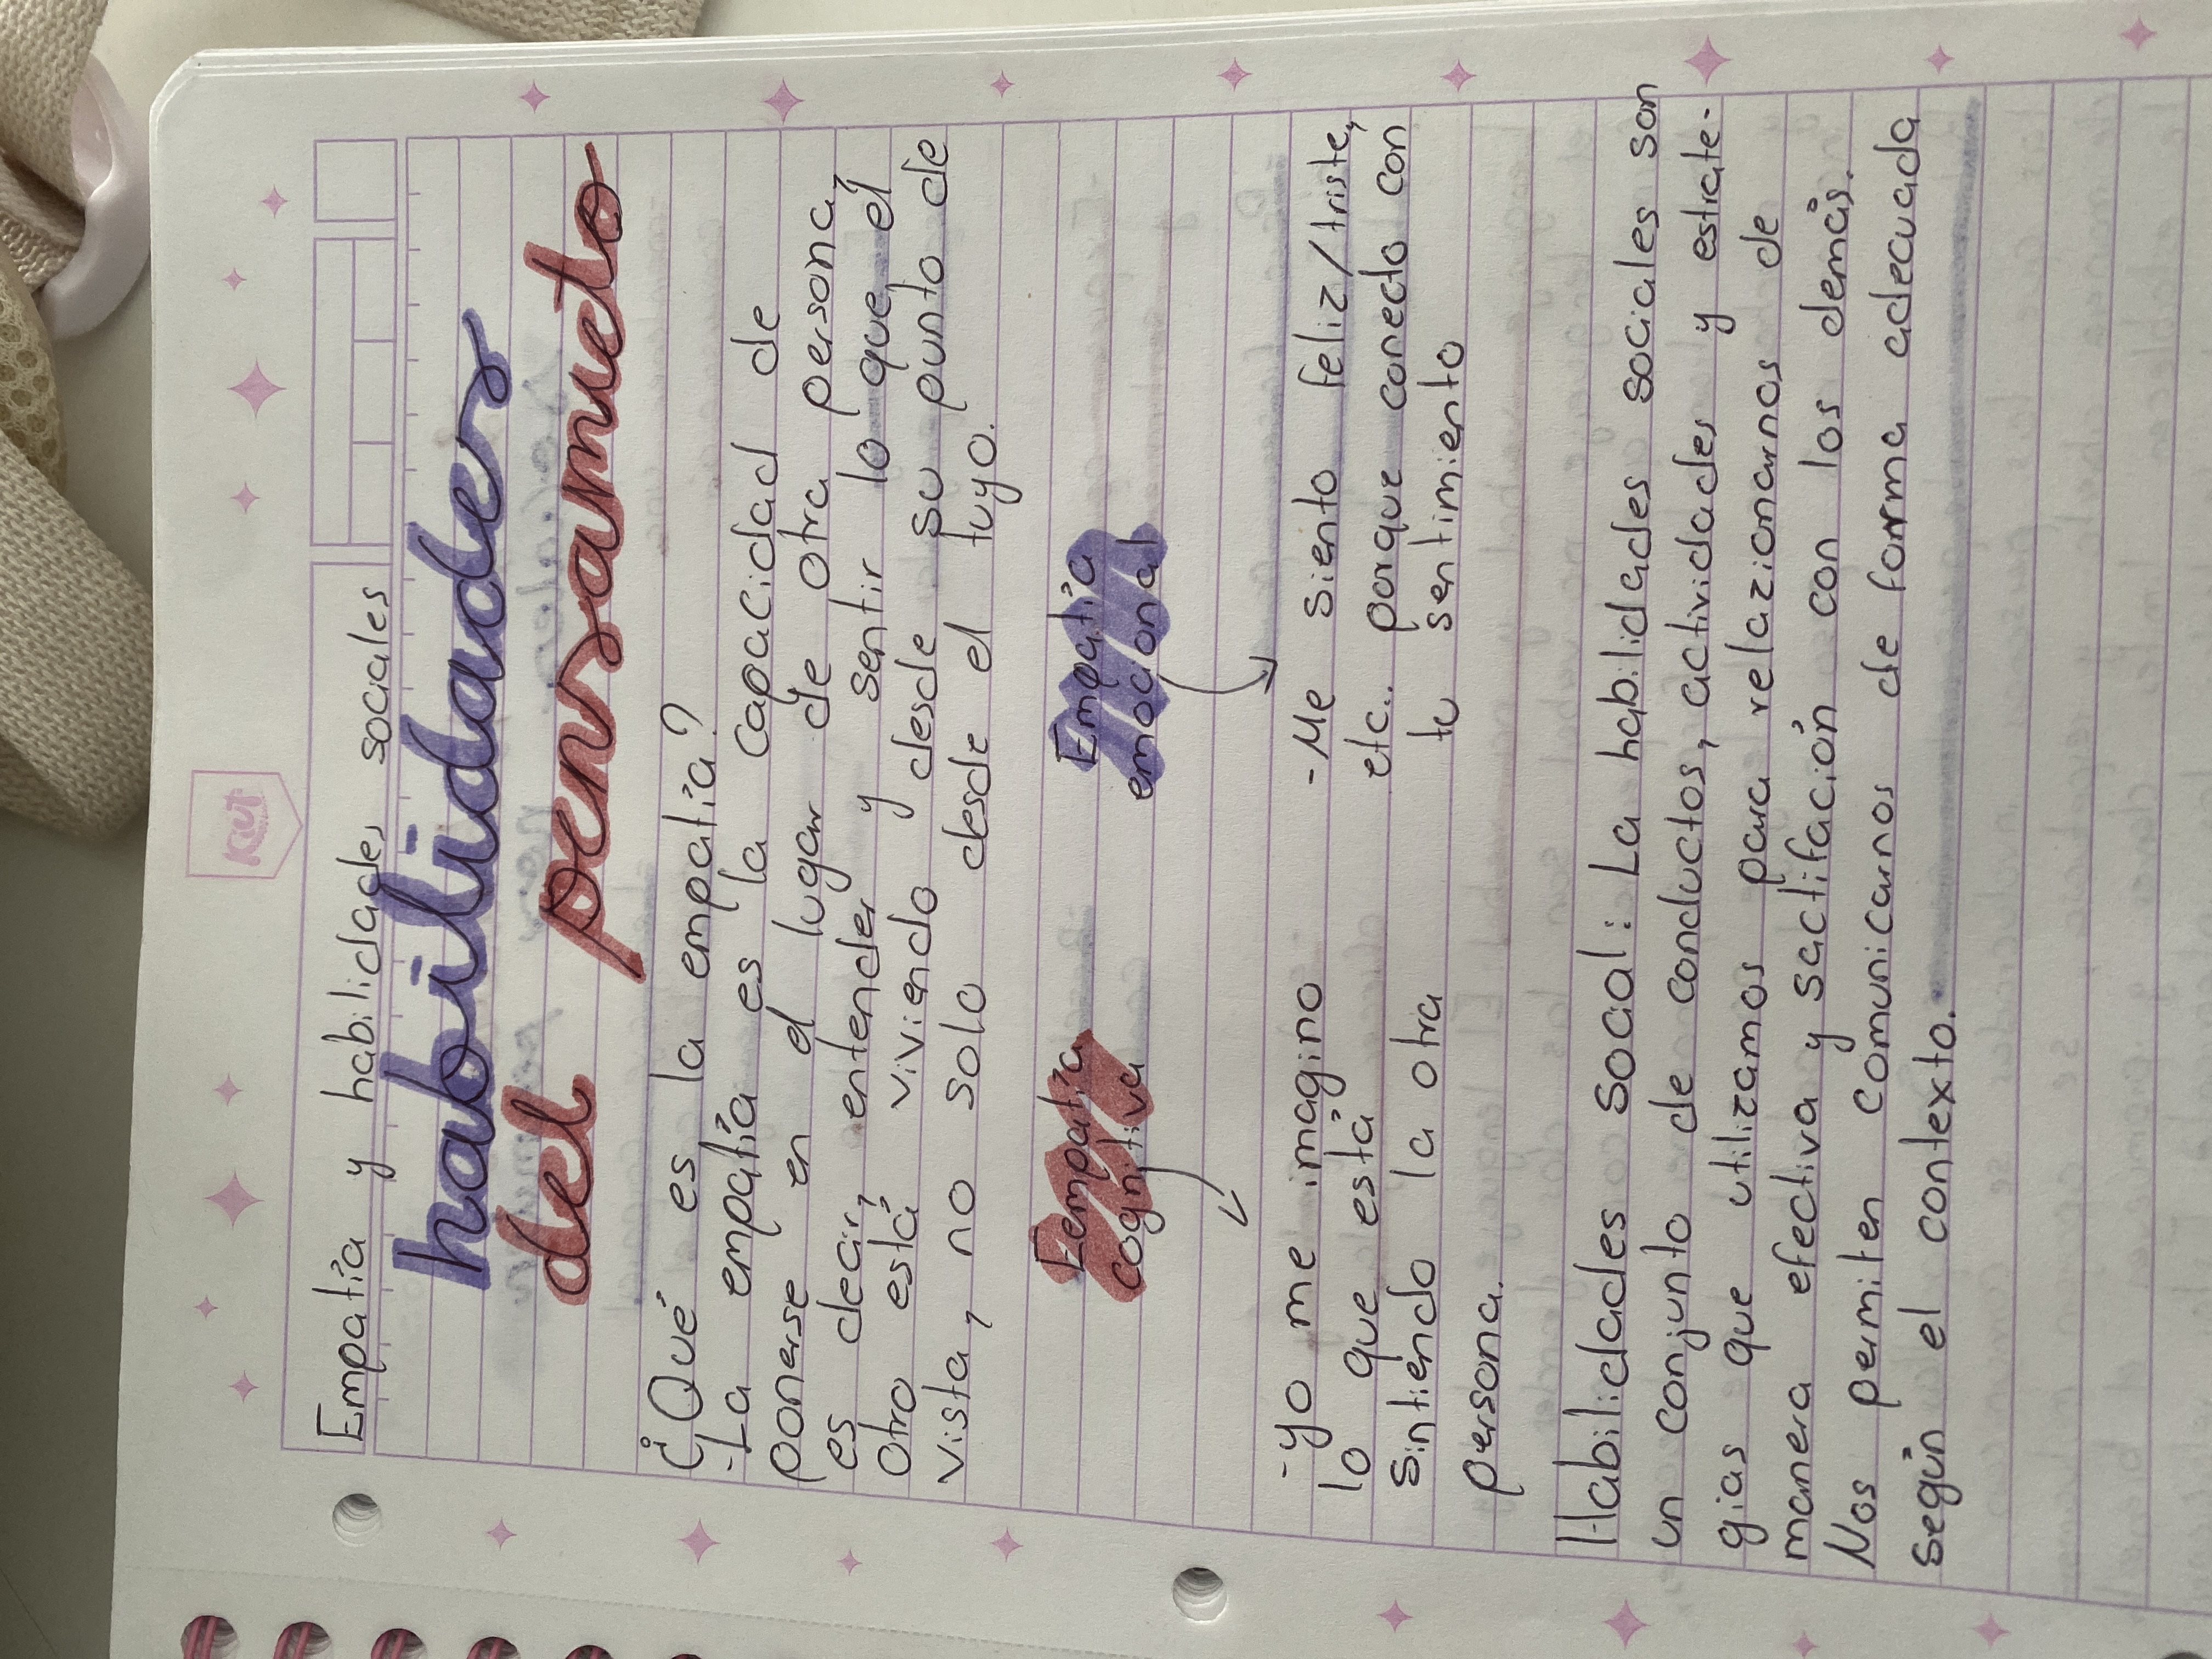 KUT
Empatía y habilidades sociales
habilidades
del pensamieto
¿Qué es la empatía?
-La empatía es la capacidad de
ponerse en el lugar de otra persona,
es decir, entender y sentir lo que el
otro está viviendo y desde su punto de
vista, no solo desde el tuyo.
Eempatía
cognitiva
Empatía
emocional
-yo me imagino
lo que está
sintiendo la otra
persona.
-Me siento feliz/triste,
etc. porque conecto con
tu sentimiento
Habilidades social: La habilidades sociales son
un conjunto de conductos, actividades y estrate-
gias que utilizamos para relazionarnos de
manera efectiva y sactifación con los demás.
Nos permiten comunicarnos de forma adecuada
según el contexto.